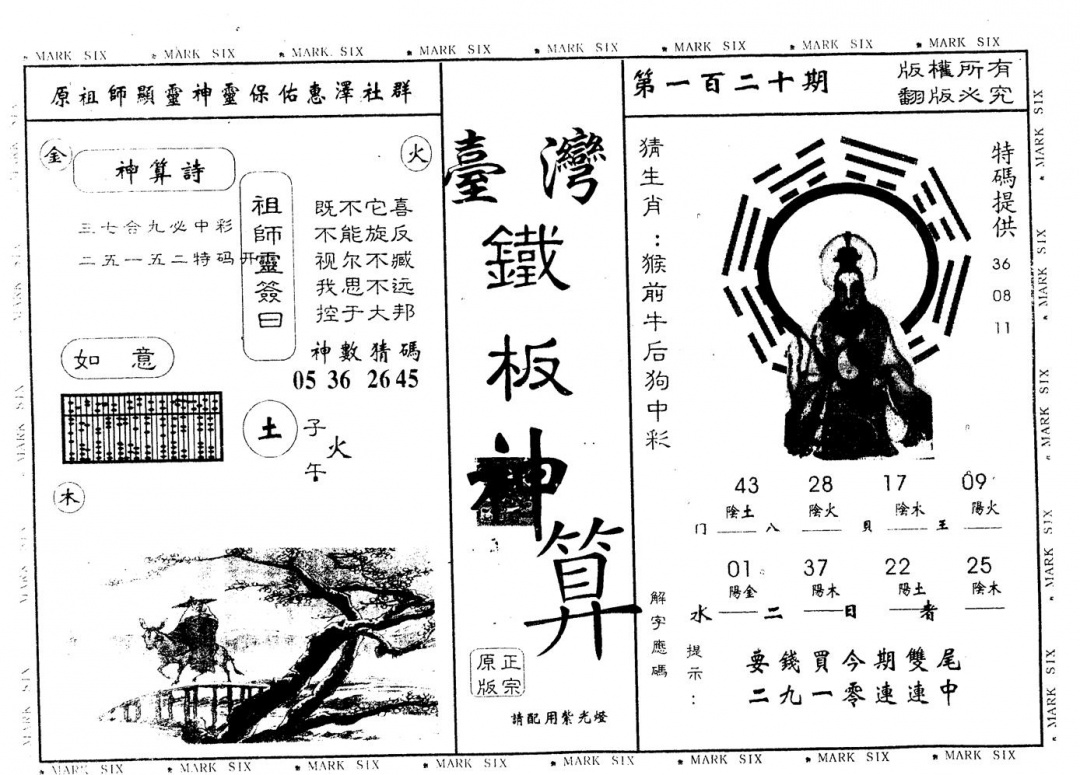 MARK SIX MARK SIX MARK SIX MARK SIX MARK SIX MARK SIX MARK SIX MARK SIX
原祖師顯靈神靈保佑惠澤社群
金
神算詩
三七合九必中彩
二五一五二特码开
火
祖師靈簽曰
既不它喜
不能旋反
视尔不臧
我思不远
控于大邦
神數猜碼
05 36 26 45
如意
土
子
火
午
木
臺灣
鐵
板
神
算
正宗
原版
請配用紫光燈
第一百二十期
版權所有
翻版必究
猜生肖：猴前牛后狗中彩
特碼提供
36
08
11
43 28 17 09
陰土 陰火 陰木 陽火
门 八 貝 王
01 37 22 25
陽金 陽木 陽土 陰木
水 二 日 者
解字應碼
提示：
要錢買今期雙尾
二九一零連連中
MARK SIX MARK SIX MARK SIX MARK SIX
MARK SIX MARK SIX MARK SIX MARK SIX MARK SIX
MARK SIX MARK SIX MARK SIX MARK SIX MARK SIX MARK SIX MARK SIX MARK SIX